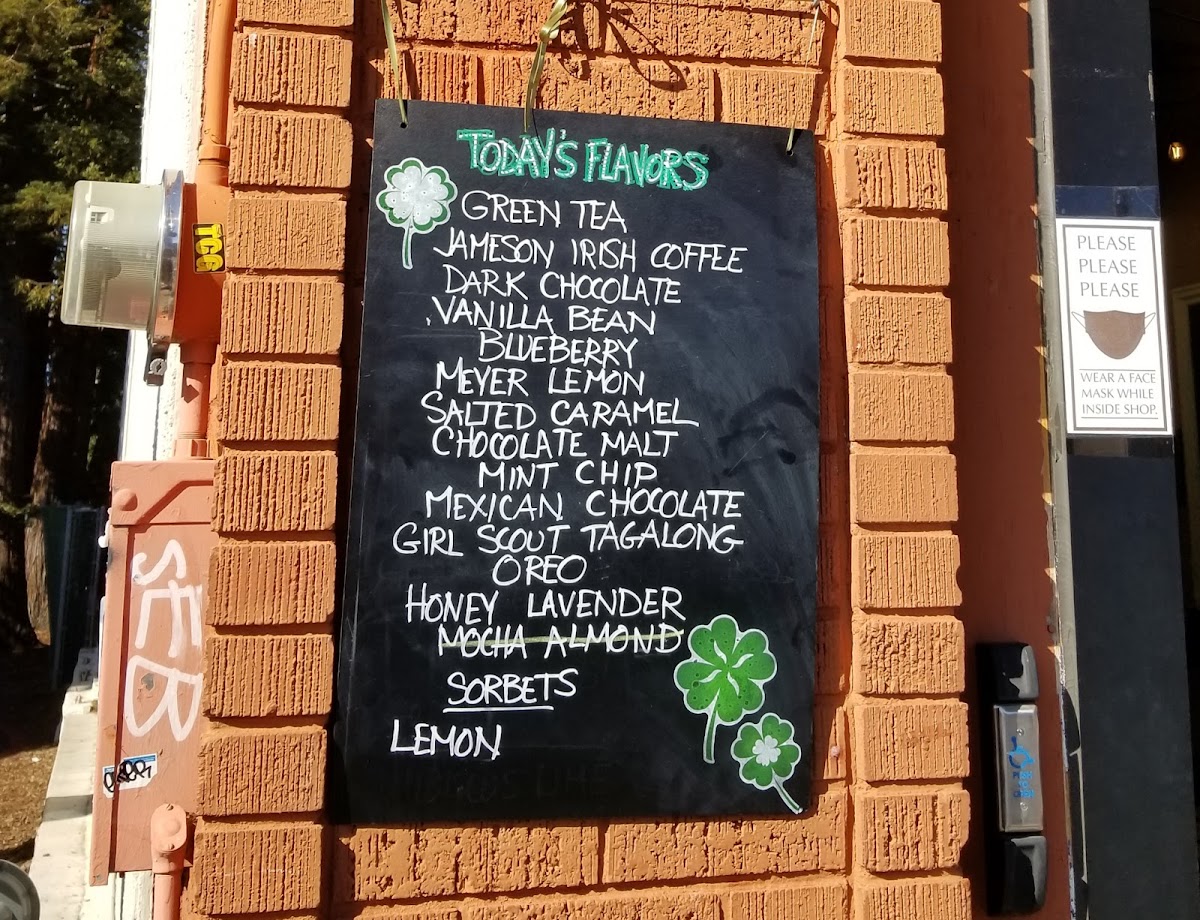 TODAY'S FLAVORS
GREEN TEA
JAMESON IRISH COFFEE
DARK CHOCOLATE
VANILLA BEAN
BLUEBERRY
MEYER LEMON
SALTED CARAMEL
CHOCOLATE MALT
MINT CHIP
MEXICAN CHOCOLATE
GIRL SCOUT TAGALONG
OREO
HONEY LAVENDER
MOCHA ALMOND
SORBETS
LEMON
TCG
SEB
PLEASE
PLEASE
PLEASE
WEAR A FACE
MASK WHILE
INSIDE SHOP.